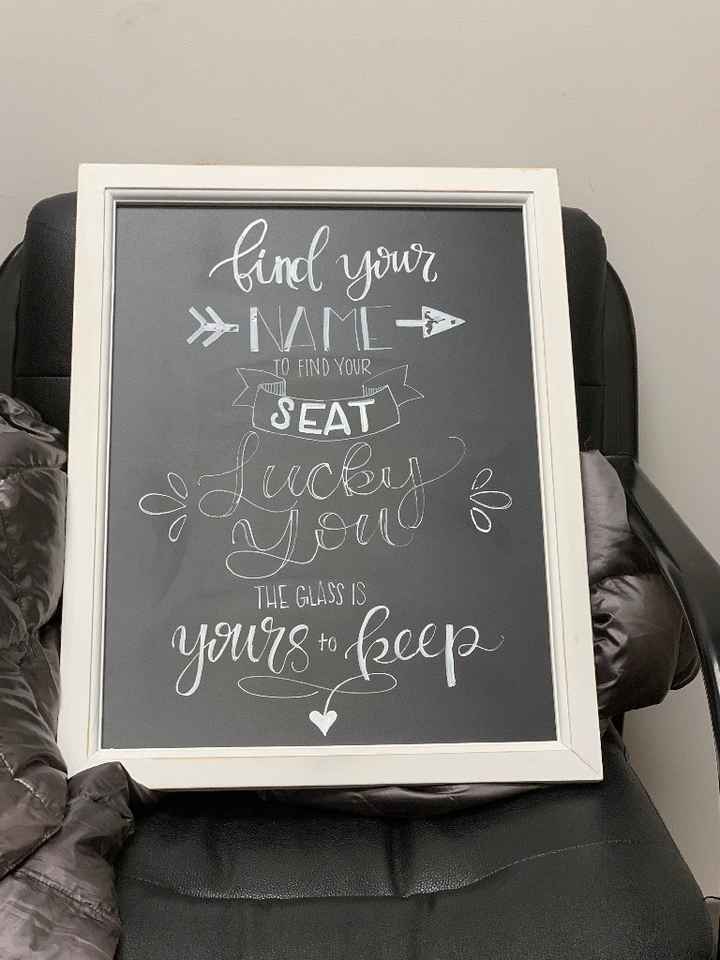 find your
NAME
TO FIND YOUR
SEAT
Lucky
You
THE GLASS IS
yours to keep